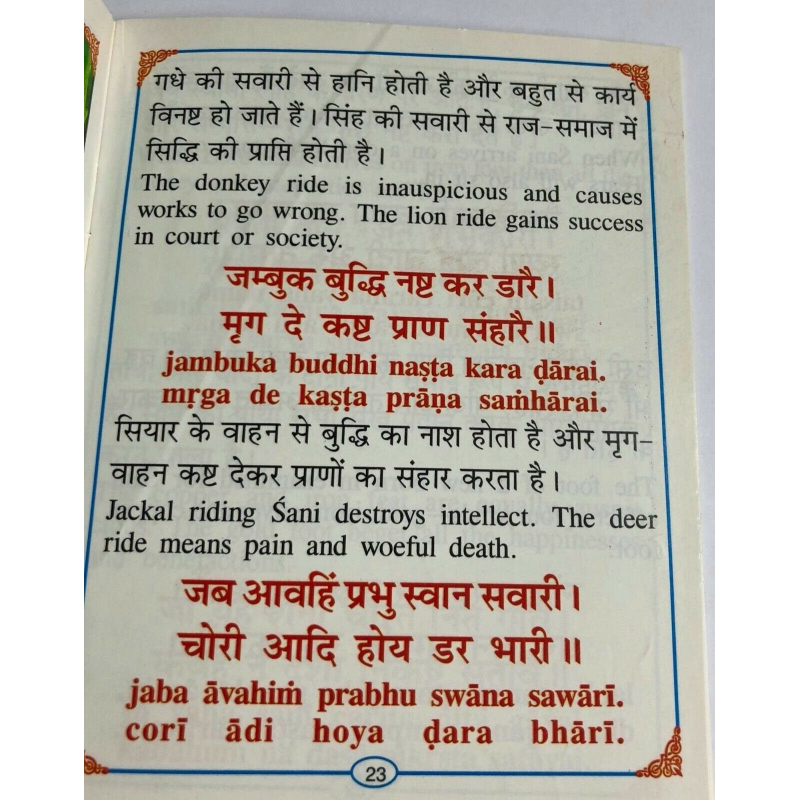 गधे की सवारी से हानि होती है और बहुत से कार्य
विनष्ट हो जाते हैं। सिंह की सवारी से राज-समाज में
सिद्धि की प्राप्ति होती है।
The donkey ride is inauspicious and causes
works to go wrong. The lion ride gains success
in court or society.
जम्बुक बुद्धि नष्ट कर डारै।
मृग दे कष्ट प्राण संहारै॥
jambuka buddhi naṣṭa kara ḍārai.
mṛga de kaṣṭa prāṇa saṁhārai.
सियार के वाहन से बुद्धि का नाश होता है और मृग-
वाहन कष्ट देकर प्राणों का संहार करता है।
Jackal riding Śani destroys intellect. The deer
ride means pain and woeful death.
जब आवहिं प्रभु स्वान सवारी।
चोरी आदि होय डर भारी॥
jaba āvahiṁ prabhu swāna sawārī.
corī ādi hoya ḍara bhārī.
23